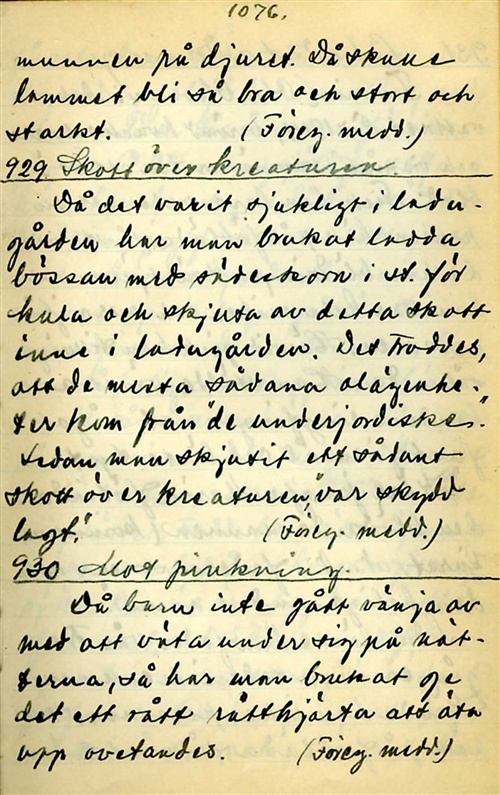 1076.
munnen på djuret. Då skulle
lammet bli så bra och stort och
starkt. (Föreg. medd.)
929 Skott över kreaturen.
Då det varit sjukligt i ladu-
gården har man brukat ladda
bössan med sädeskorn i st. för
kula och skjuta av detta skott
inne i ladugården. Det troddes,
att de mesta sådana olägenhe-
ter kom från "de underjordiske".
Sedan man skjutit ett sådant
skott över kreaturen, "var skydd
lagt." (Föreg. medd.)
930 Mot pinkning.
Då barn inte gått vänja av
med att väta under sig på nät-
terna, så har man brukat ge
det ett rått råtthjärta att äta
upp ovetandes. (Föreg. medd.)